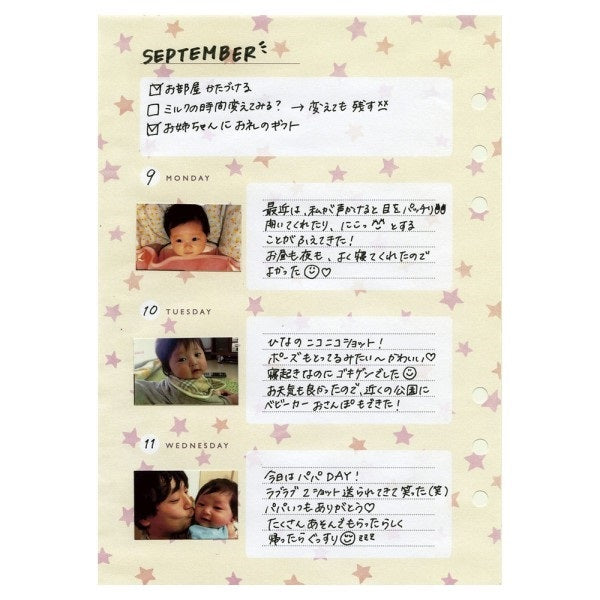 SEPTEMBER
☑ お部屋 かたづける
☐ ミルクの時間変えてみる? → 変えても 残す××
☑ お姉ちゃんに お礼のギフト
9 MONDAY
最近は、私が声かけると 目を パッチリ
開いてくれたり、にこっ ^^ とする
ことが ふえてきた!
お昼も夜も、よく寝てくれたので
よかった ☺♡
10 TUESDAY
ひなの ニコニコショット!
ポーズもとってるみたい〜かわいい♡
寝起きなのに ゴキゲンでした☺
お天気も良かったので、近くの公園に
ベビーカー おさんぽもできた!
11 WEDNESDAY
今日は パパ DAY!
ラブラブ 2ショット 送られてきて 笑った(笑)
パパいつも ありがとう♡
たくさん あそんでもらったらしく
帰ったらぐっすり☺zzz